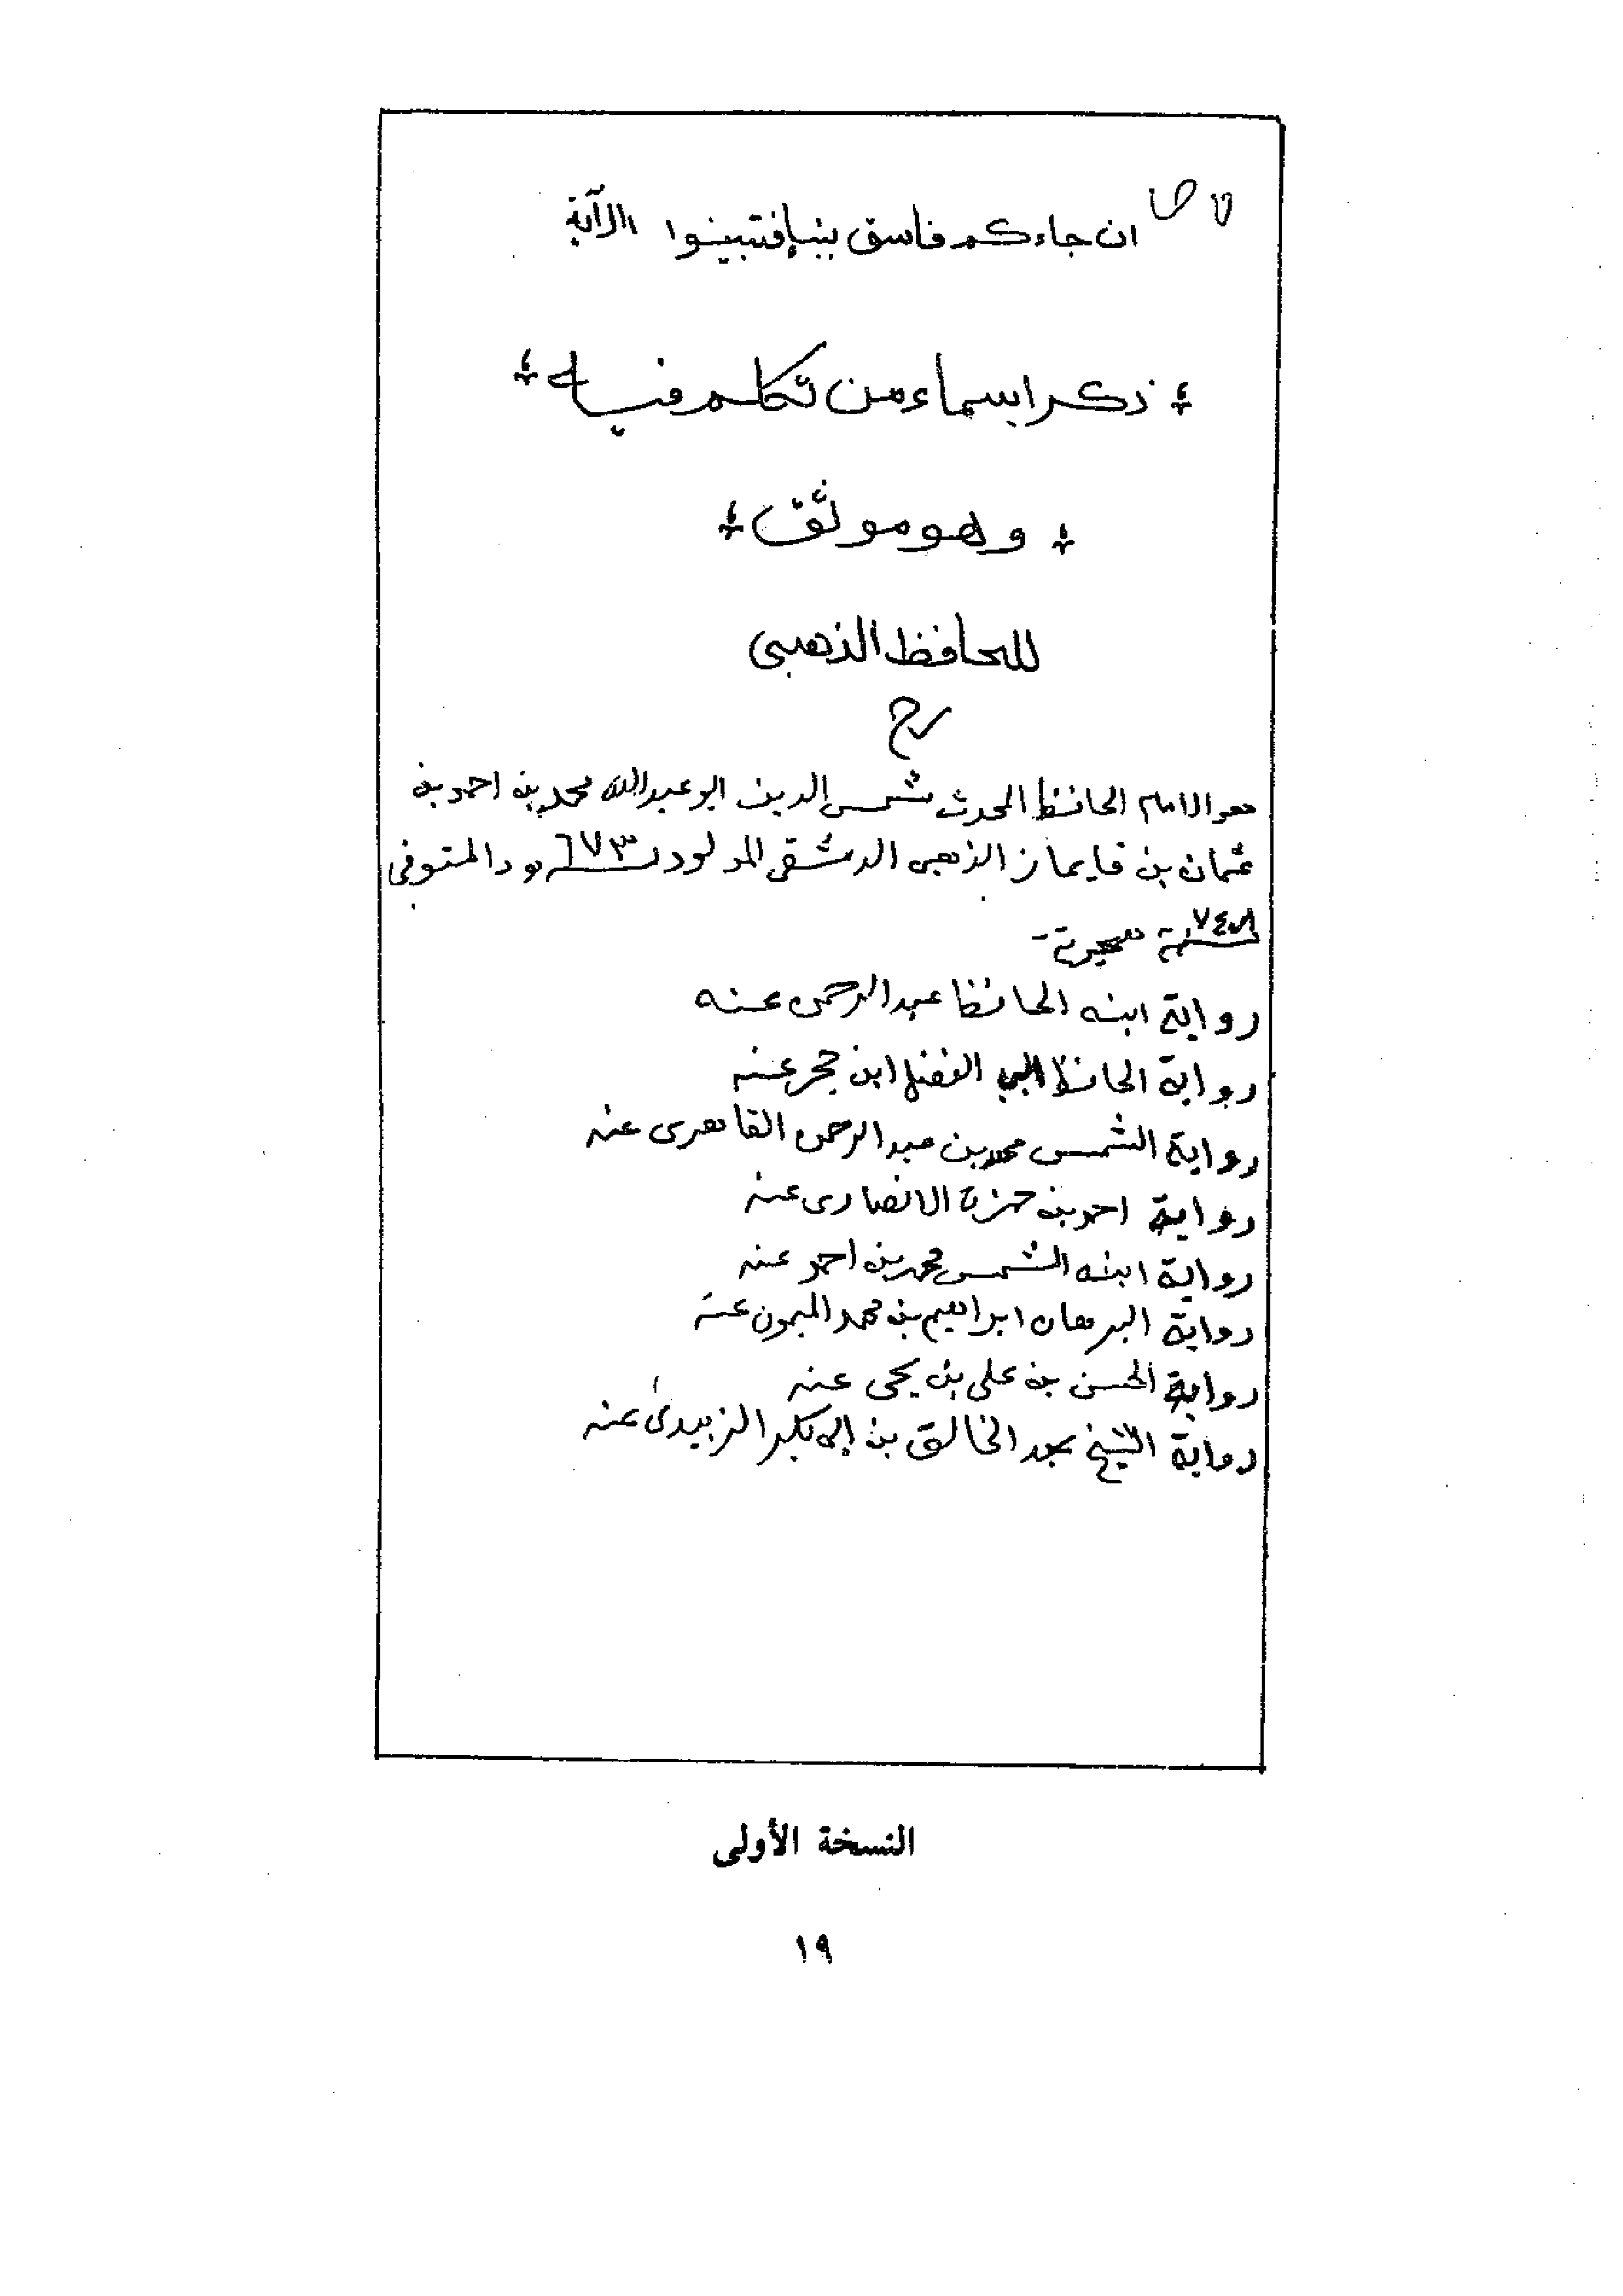 ان جاءكم فاسق بنبإ فتبينوا الآية
ذكر اسماء من تكلم فيه
وهو موثق
للحافظ الذهبي
رح
هو الامام الحافظ المحدث شمس الدين ابو عبدالله محمد بن احمد بن
عثمان بن قايماز الذهبي الدمشقي المولود ٦٧٣ والمتوفى
٧٤٨ سنة هجرية -
رواية ابنه الحافظ عبد الرحمن عنه
رواية الحافظ ابي الفضل ابن حجر عنه
رواية الشمس محمد بن عبد الرحمن القاهرى عنه
رواية احمد بن حمزة الانصارى عنه
رواية ابنه الشمس محمد بن احمد عنه
رواية البرهان ابراهيم بن محمد الميمون عنه
رواية الحسن بن علي بن يحي عنه
رواية الشيخ عبد الخالق بن ابي بكر الزبيدى عنه
النسخة الأولى
١٩